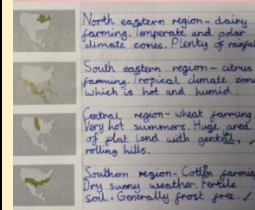 North eastern region - dairy
farming. Temperate and polar
climate zones. Plenty of rainfall
South eastern region - citrus
farming. Tropical climate zone
which is hot and humid.
Central region - wheat farming.
Very hot summers. Huge area
of flat land with gentle
rolling hills.
Southern region - Cotton farming
Dry sunny weather. Fertile
soil. Generally frost free.